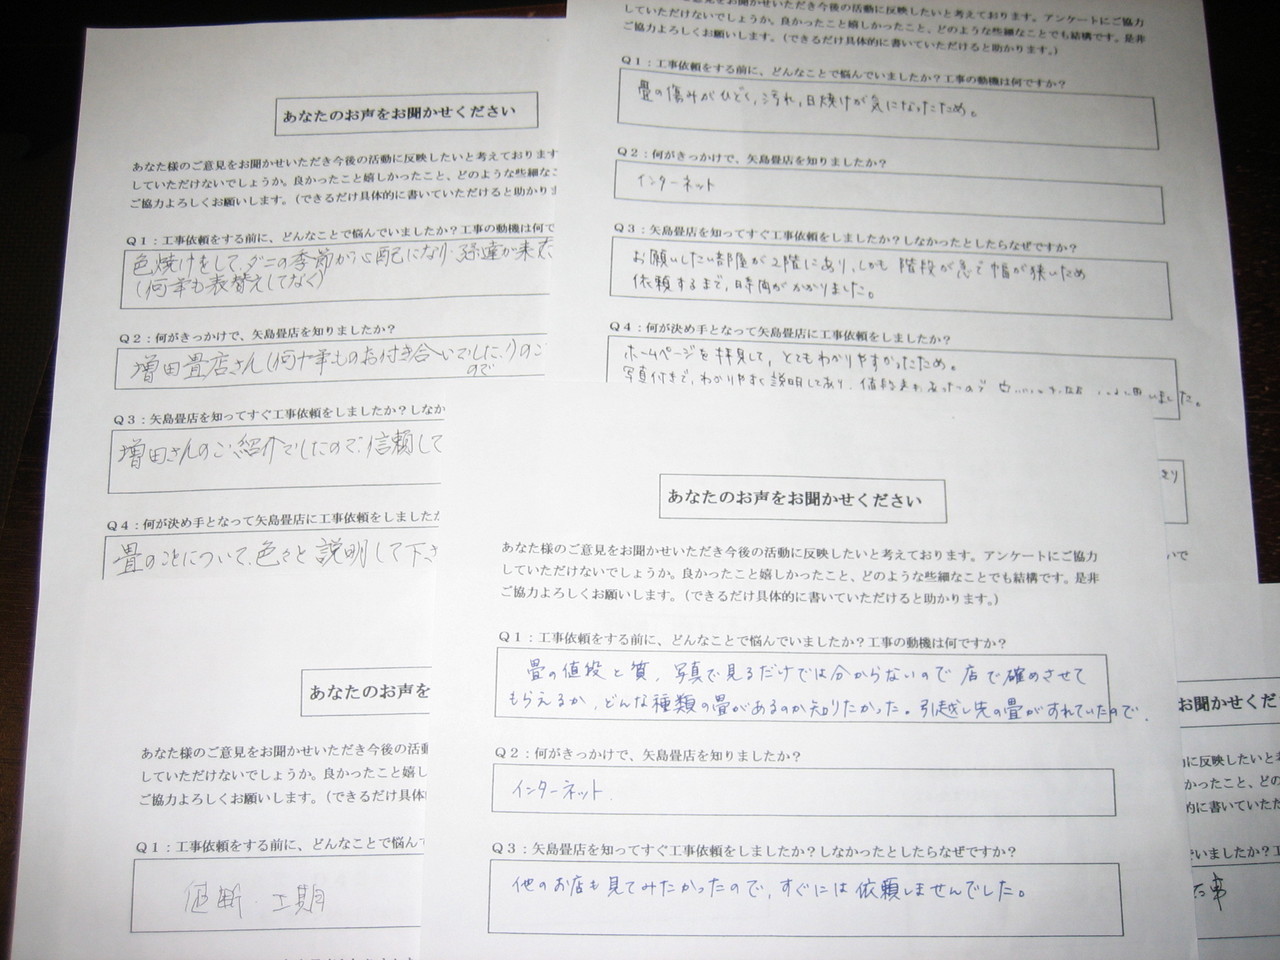 あなたのお声をお聞かせください
あなた様のご意見をお聞かせいただき今後の活動に反映したいと考えております
していただけないでしょうか。良かったこと嬉しかったこと、どのような些細なこ
ご協力よろしくお願いします。（できるだけ具体的に書いていただけると助かりま
Q1：工事依頼をする前に、どんなことで悩んでいましたか？工事の動機は何で
色焼けをして、ダニの季節から心配になり
(何年も表替えしてなく)
Q2：何がきっかけで、矢島畳店を知りましたか？
増田畳店さん(何十年ものお付き合いでした
ので
Q3：矢島畳店を知ってすぐ工事依頼をしましたか？しなか
増田さんのご紹介でしたので、信頼して
Q4：何が決め手となって矢島畳店に工事依頼をしましたか
畳のことについて、色々と説明して下さ
していただけないでしょうか。良かったこと嬉しかったこと、どのような些細なことでも結構です。是非
ご協力よろしくお願いします。（できるだけ具体的に書いていただけると助かります。）
Q1：工事依頼をする前に、どんなことで悩んでいましたか？工事の動機は何ですか？
畳の傷みがひどく、汚れ、日焼けが気になったため。
Q2：何がきっかけで、矢島畳店を知りましたか？
インターネット
Q3：矢島畳店を知ってすぐ工事依頼をしましたか？しなかったとしたらなぜですか？
お願いしたい部屋が2階にあり、しかも階段が急で幅が狭いため
依頼するまで、時間がかかりました。
Q4：何が決め手となって矢島畳店に工事依頼をしましたか？
ホームページを拝見して、とてもわかりやすかったため。
写真付きで、わかりやすく説明してあり、値段も
あなたのお声をお聞かせください
あなた様のご意見をお聞かせいただき今後の活動に反映したいと考えております。アンケートにご協力
していただけないでしょうか。良かったこと嬉しかったこと、どのような些細なことでも結構です。是非
ご協力よろしくお願いします。（できるだけ具体的に書いていただけると助かります。）
Q1：工事依頼をする前に、どんなことで悩んでいましたか？工事の動機は何ですか？
畳の値段と質、写真で見るだけでは分からないので店で確めさせて
もらえるか、どんな種類の畳があるのか知りたかった。引越し先の畳がすれていたので、
Q2：何がきっかけで、矢島畳店を知りましたか？
インターネット
Q3：矢島畳店を知ってすぐ工事依頼をしましたか？しなかったとしたらなぜですか？
他のお店も見てみたかったので、すぐには依頼しませんでした。
あなたのお声を
あなた様のご意見をお聞かせいただき今後の活動
していただけないでしょうか。良かったこと嬉し
ご協力よろしくお願いします。（できるだけ具体
Q1：工事依頼をする前に、どんなことで悩んで
値断 工期
お聞かせくだ
に反映したいと考
かったこと、どの
的に書いていただ
でいましたか？工